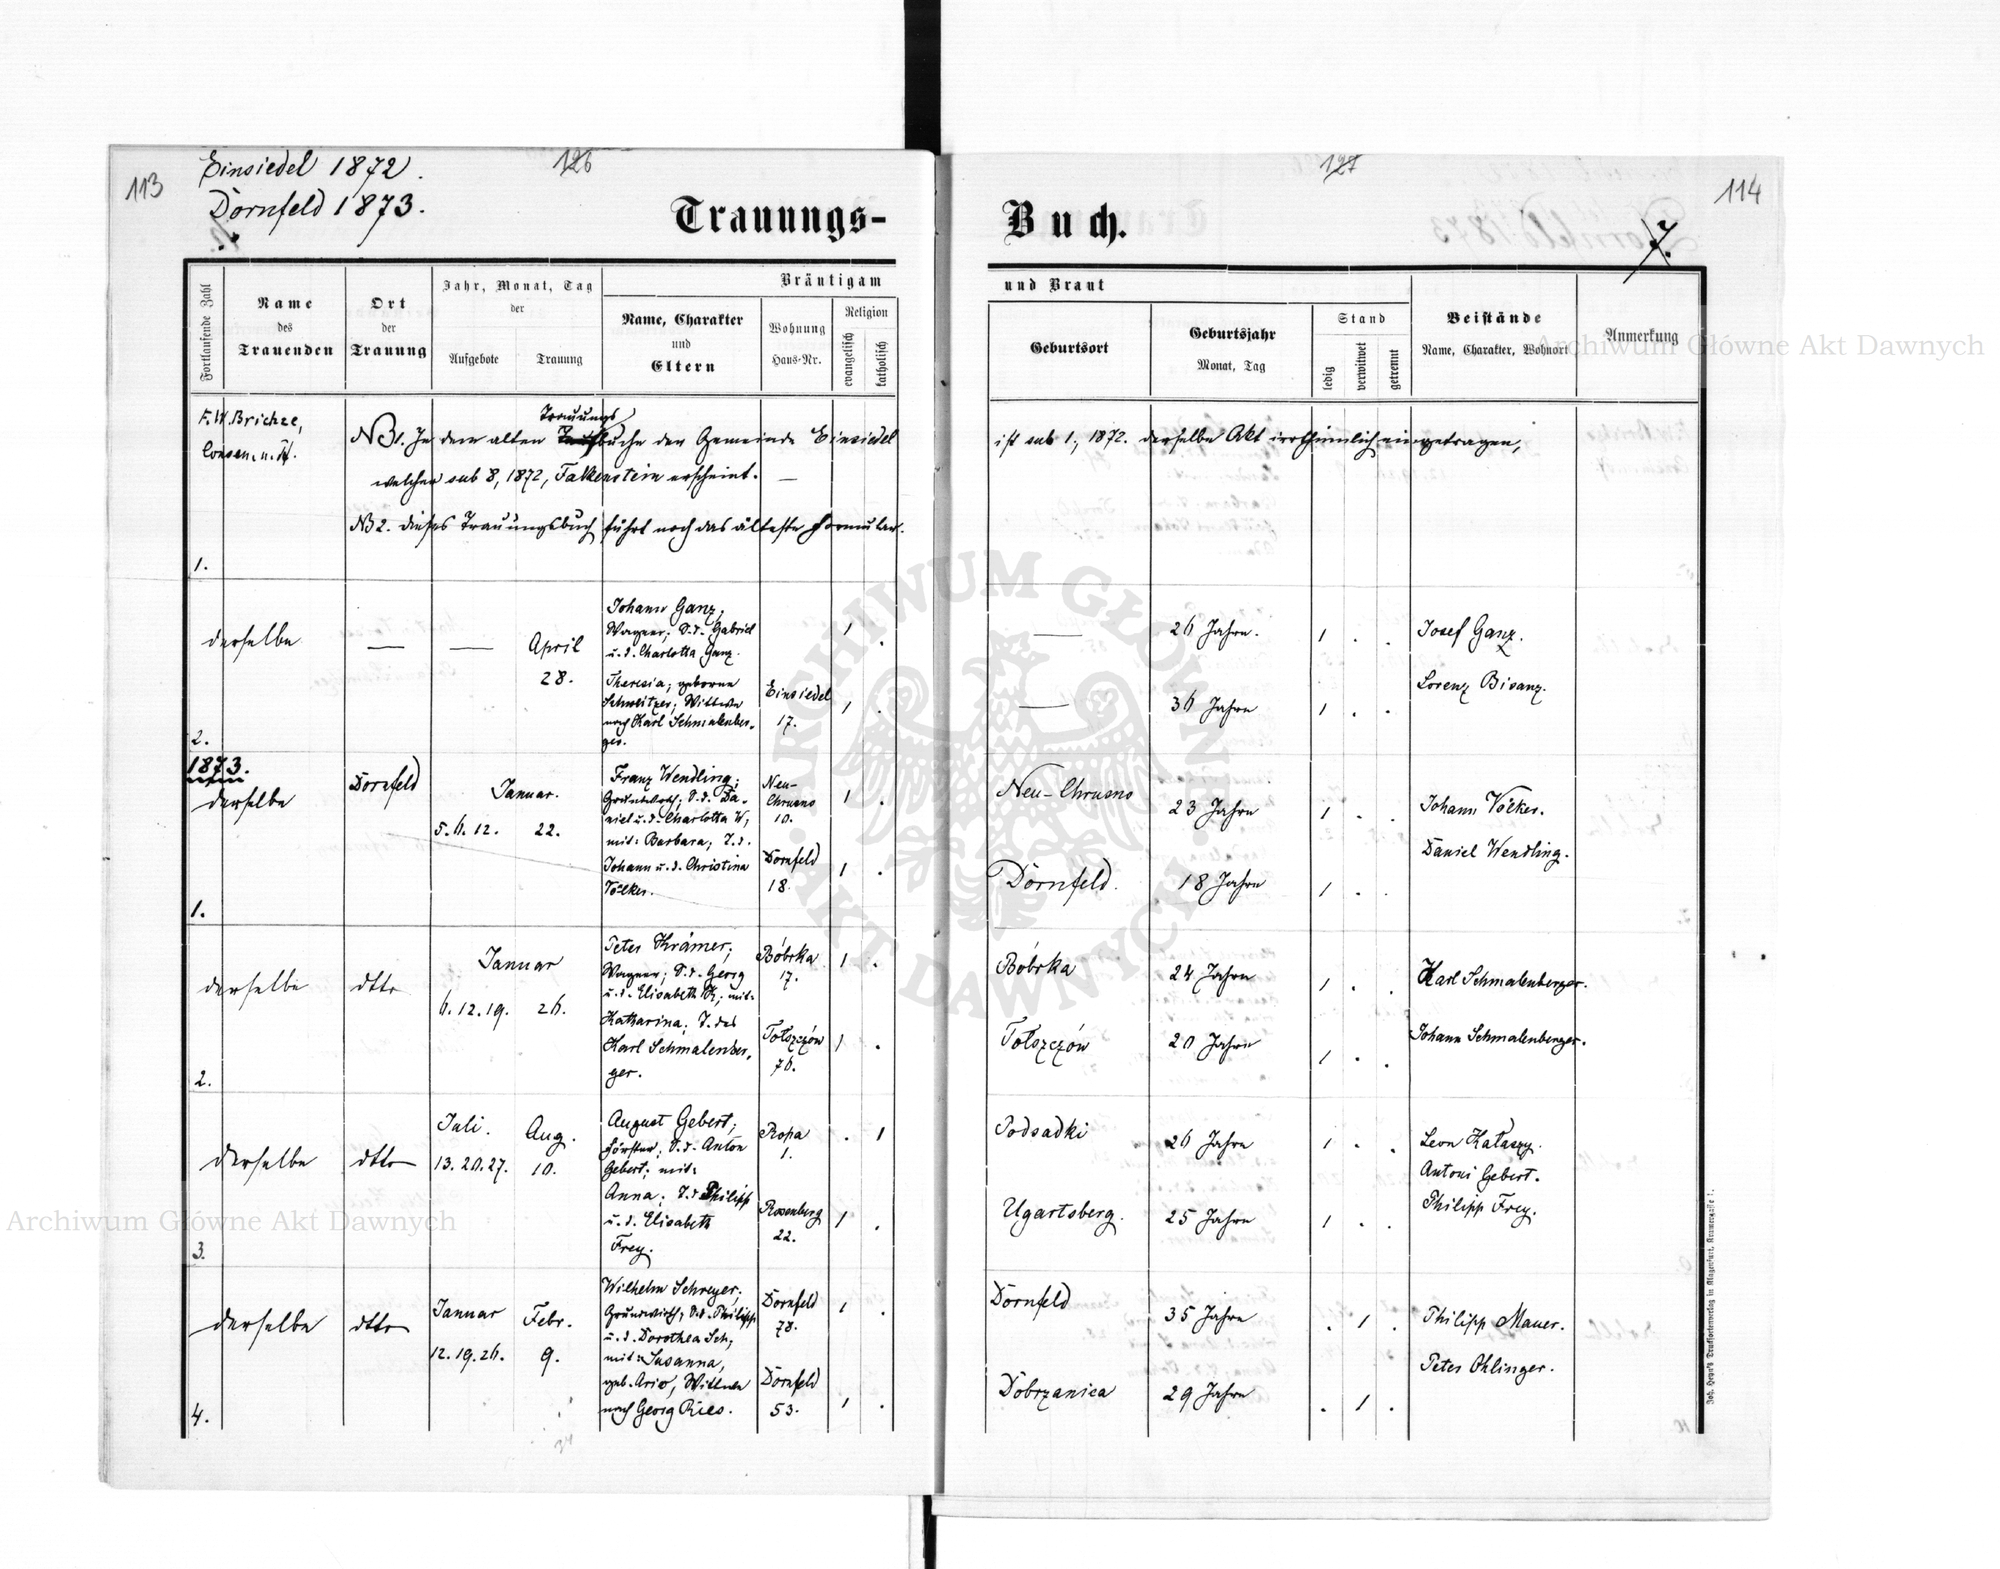 Einsiedel 1872.
Dornfeld 1873.
113
126
127
114
7.
Trauungs-
Buch.
Fortlaufende Zahl
Name
des
Trauenden
Ort
der
Trauung
Jahr, Monat, Tag
der
Aufgebote
Trauung
Bräutigam
Name, Charakter
und
Eltern
Wohnung
Haus-Nr.
Religion
evangelisch
katholisch
und Braut
Geburtsort
Geburtsjahr
Monat, Tag
Stand
ledig
verwitwet
getrennt
Beistände
Name, Charakter, Wohnort
Anmerkung
F. W. Brichze,
NB 1. In dem alten Trauungsbuche der Gemeinde Einsiedel ist sub 1, 1872. derselbe Akt irrthümlich eingetragen,
welcher sub 8, 1872, Falkenstein erscheint. —
NB 2. dieses Trauungsbuch führt noch das älteste Formular.
1.
derselbe
—
—
April
28.
Johann Ganz;
Wagner; S. d. Gabriel
u. d. Charlotta Ganz.
Theresia; geborne
Schweitzer; Wittwe
nach Karl Schmalenber-
ger.
Einsiedel
17.
—
26 Jahre.
—
36 Jahre
Josef Ganz.
Lorenz Bisanz.
2.
1873.
derselbe
Dornfeld
Januar.
5. 6. 12. 22.
Franz Wendling;
Grundwirth; S. d. Da-
niel u. d. Charlotta W;
mit: Barbara; T. d.
Johann u. d. Christina
Völker.
Neu-
Chrusno
10.
Dornfeld
18.
Neu-Chrusno
23 Jahre
Dornfeld.
18 Jahre
Johann Völker.
Daniel Wendling.
1.
derselbe
dtto
Januar
6. 12. 19. 26.
Peter Krämer;
Wagner; S. d. Georg
u. d. Elisabeth K; mit:
Katharina; T. des
Karl Schmalenber-
ger.
Bóbrka
17.
Tołszczów
76.
Bóbrka
24 Jahre
Tołszczów
20 Jahre
Karl Schmalenberger.
Johann Schmalenberger.
2.
derselbe
dtto
Juli. Aug.
13. 20. 27. 10.
August Gebert;
Förster; S. d. Anton
Gebert; mit:
Anna; T. d. Philipp
u. d. Elisabeth
Frey.
Ropa
1.
Rosenberg
22.
Podsadki
26 Jahre
Ugartsberg.
25 Jahre
Leon Kałaszy.
Antoni Gebert.
Philipp Frey.
3.
derselbe
dtto
Januar Febr.
12. 19. 26. 9.
Wilhelm Schreyer;
Grundwirth; S. d. Philipp
u. d. Dorothea Sch;
mit: Susanna,
geb. Ario, Wittwe
nach Georg Ries.
Dornfeld
78.
Dornfeld
53.
Dornfeld
35 Jahre
Dobrzanica
29 Jahre
Philipp Mauer.
Peter Ohlinger.
4.
Joh. Heyn's Drucksortenverlag in Klagenfurt, Kramergasse 1.
Archiwum Główne Akt Dawnych
Archiwum Główne Akt Dawnych
ARCHIWUM GŁÓWNE AKT DAWNYCH